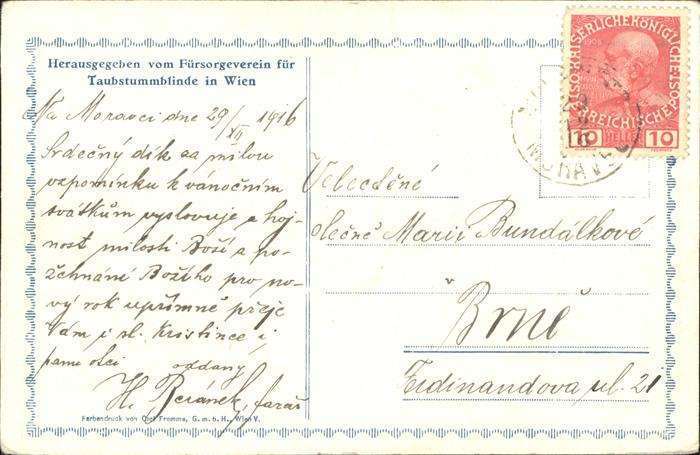 Herausgegeben vom Fürsorgeverein für
Taubstummblinde in Wien
Na Moravci dne 29/XII 1916
Srdečný dík za milou
vzpomínku k vánočním
svátkům vyslovuje a hoj-
nost milosti Boží a po-
žehnání Božího pro no-
vý rok upřímně přeje
Vám i sl. Kristince i
panu otci
oddaný
H. Beránek, farář
Farbendruck von Chr. Fromme, G. m. b. H., Wien V.
KAISERLICHE KÖNIGLICHE
ÖSTERREICHISCHE POST
1908
10 HELLER 10
MORAV
Velectěné
slečně Marii Bundálkové
v
Brně
Ferdinandova ul. 21